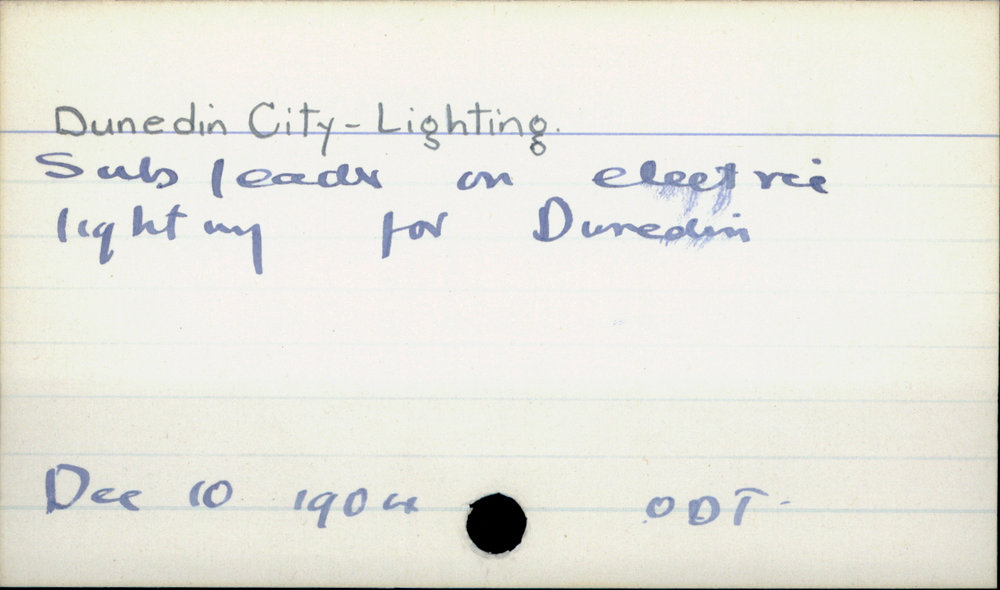 Dunedin City - Lighting.
Sub leader on electric
lighting for Dunedin
Dec 10 1904 ODT.